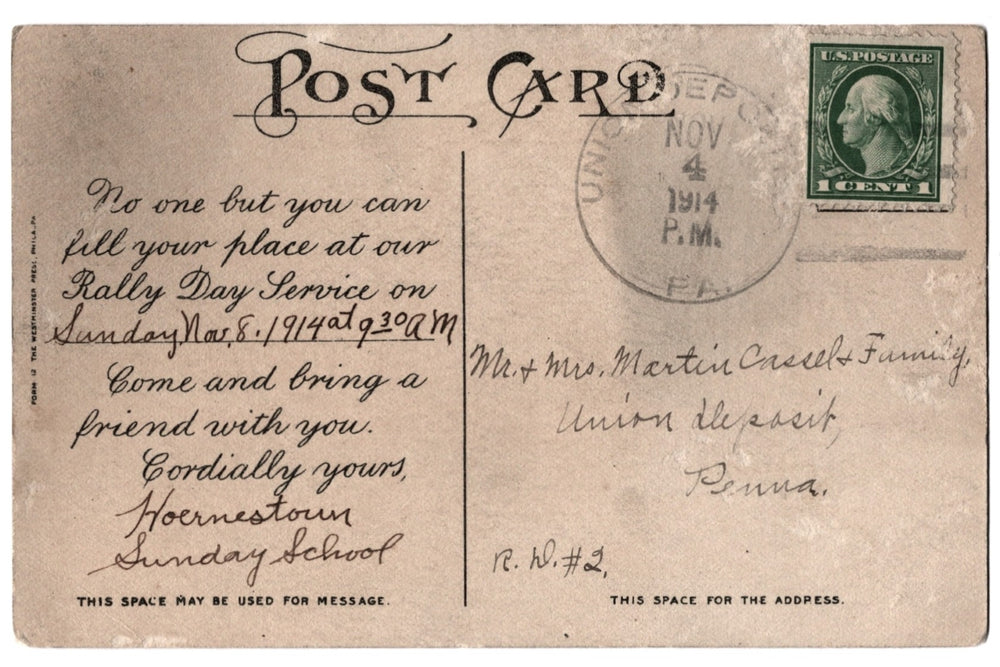 POST CARD
U.S. POSTAGE
1 CENT 1
UNION DEPOSIT
NOV
4
1914
P.M.
PA.
No one but you can
fill your place at our
Rally Day Service on
Sunday, Nov. 8. 1914 at 9 30 A M
Come and bring a
friend with you.
Cordially yours,
Hoernestown
Sunday School
THIS SPACE MAY BE USED FOR MESSAGE.
FORM 12 THE WESTMINSTER PRESS, PHILA., PA
Mr. & Mrs. Martin Cassel & Family,
Union Deposit,
Penna.
R. D. #2,
THIS SPACE FOR THE ADDRESS.